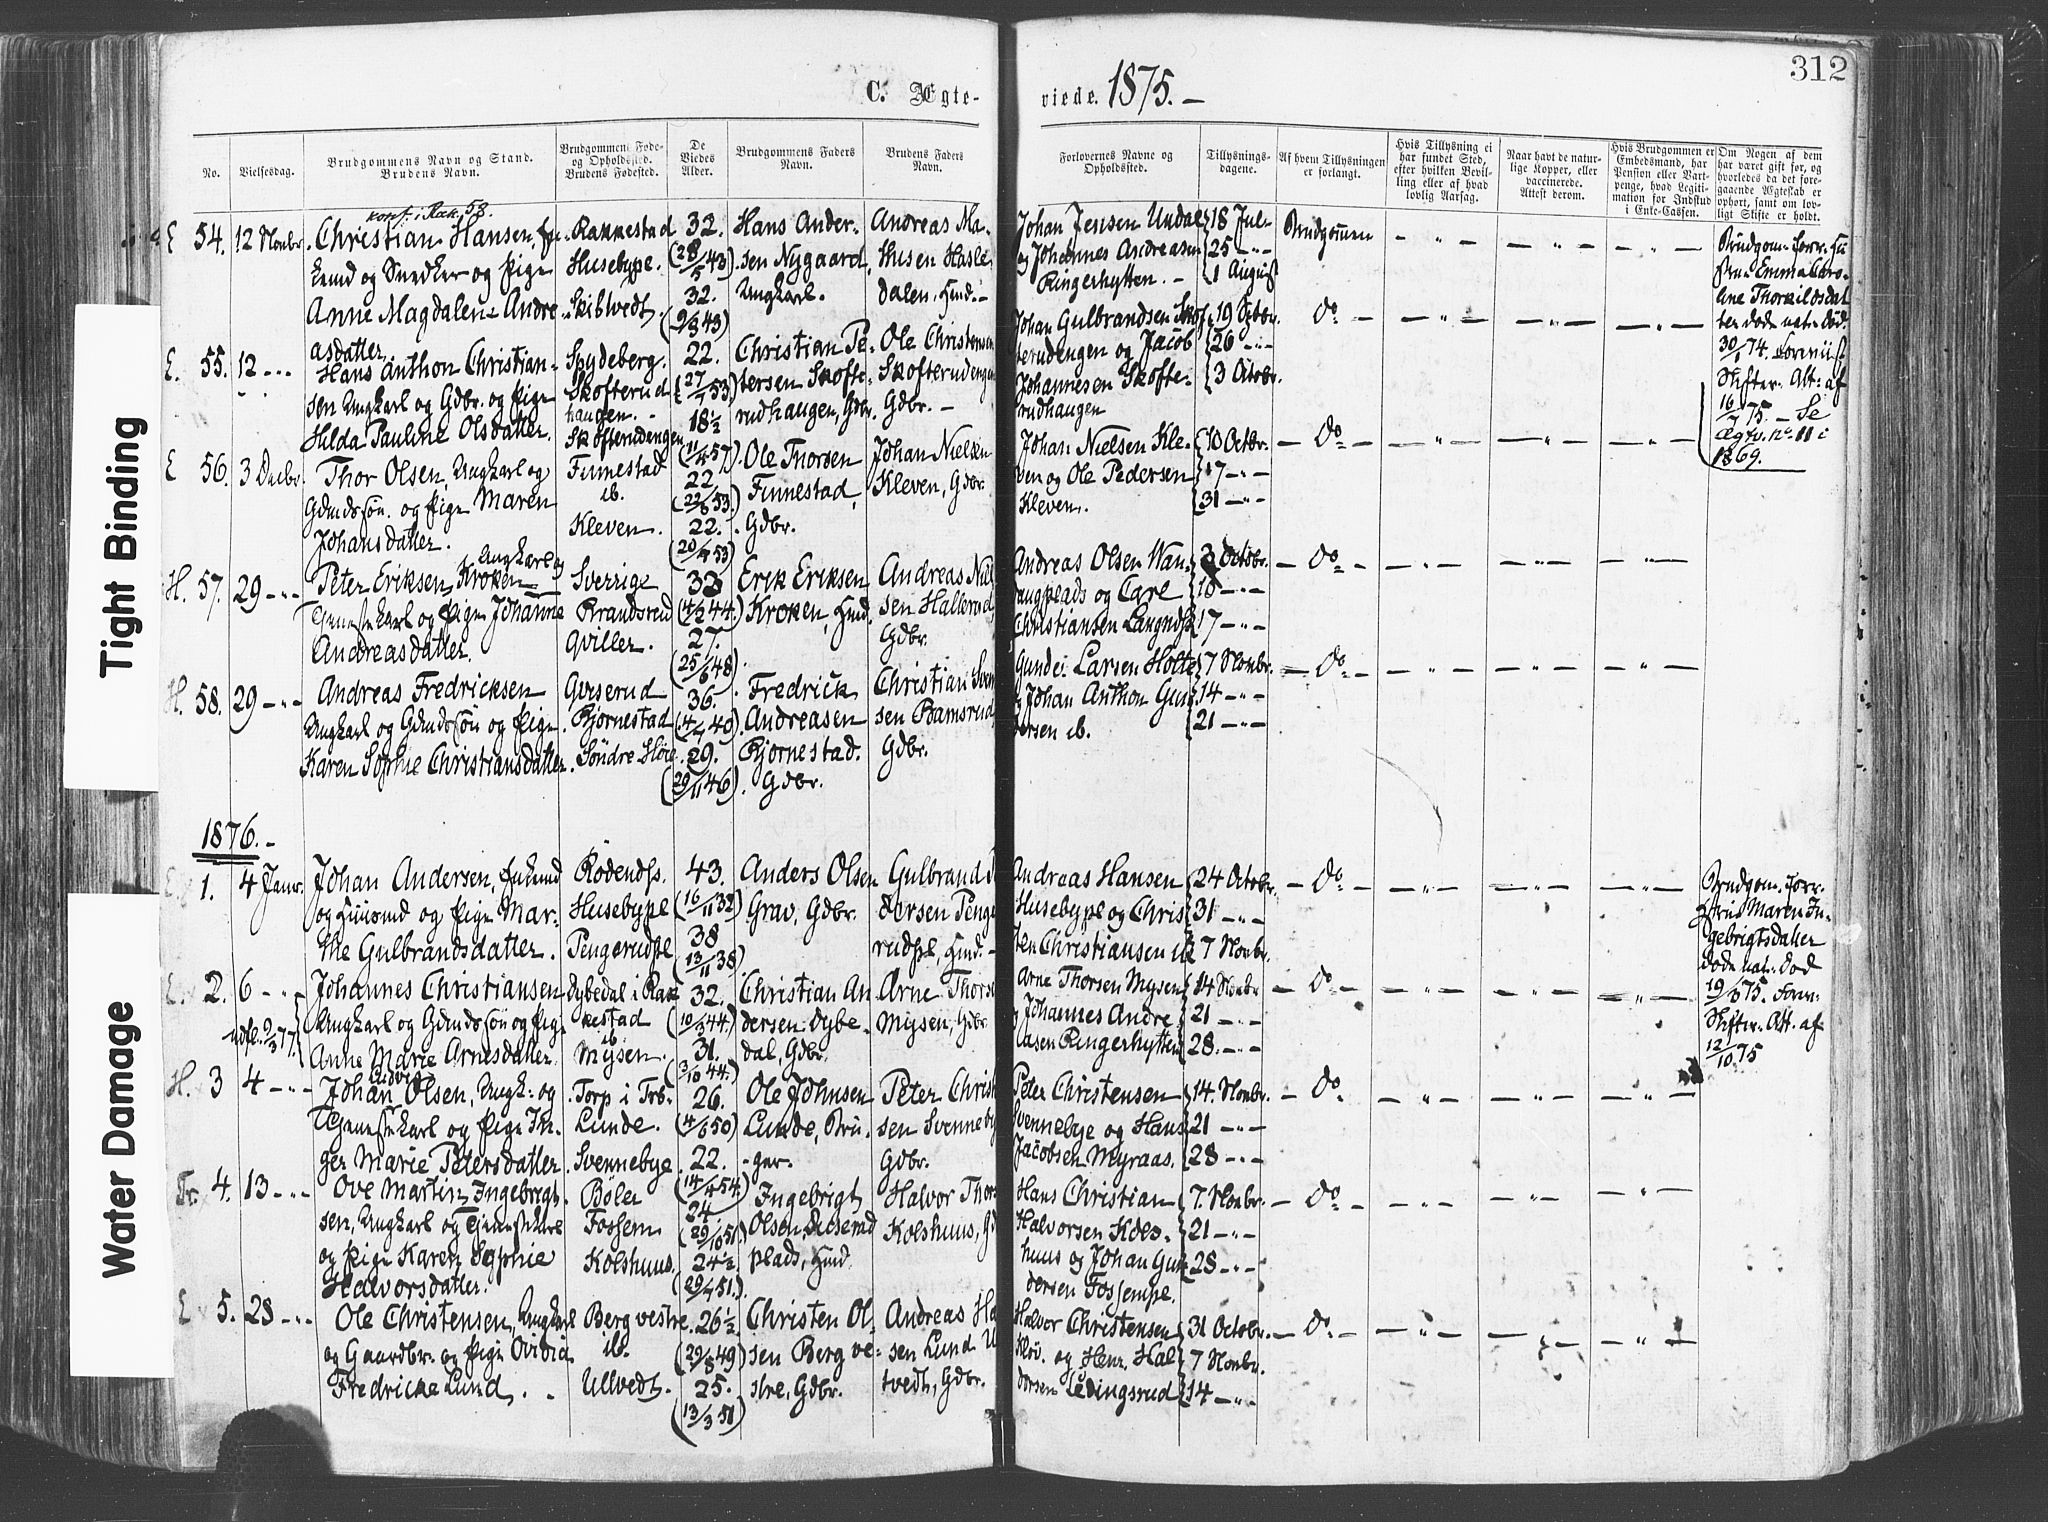 312
C. Ægte-
viede. 1875. –
No.
Vielsesdag.
Brudgommens Navn og Stand.
Brudens Navn.
Brudgommens Føde-
og Opholdssted.
Brudens Fødested.
De
Viedes
Alder.
Brudgommens Faders
Navn.
Brudens Faders
Navn.
Forlovernes Navne og
Opholdssted.
Tillysnings-
dagene.
Af hvem Tillysningen
er forlangt.
Hvis Tillysning ei
har fundet Sted,
efter hvilken Bevil-
ling eller af hvad
lovlig Aarsag.
Naar havt de natur-
lige Kopper, eller
vaccinerede.
Attest derom.
Hvis Brudgommen er
Embedsmand, har
Pension eller Vart-
penge, hvad Legiti-
mation for Indskud
i Enke-Cassen.
Om Nogen af dem
har været gift før, og
hvorledes da det fore-
gaaende Ægteskab er
ophørt, samt om lov-
ligt Skifte er holdt.
E 54. 12 Novbr
konf. i Rak. 58.
Christian Hansen, En-
kemd og Snedker og Pige
Anne Magdalene Andre-
asdatter
Rakkestad
Husebype.
Skibtvedt.
32.
(28/5 43)
32.
(9/3 43)
Hans Ander-
sen Nygaard,
Ungkarl.
Andreas Ma-
thisen Hasle
dalen, Hmd. –
Johan Jensen Undal
og Johannes Andreasen
Ringerhytten. –
18 Jul-
25 – " –
1 August
Brudgommen
Brudgom. forr. Hu
stru Emma Caro-
line Thorkildsdat
ter døde nat. Død.
30/1 74. Foreviist
Skifter. Att. af
16/7 75. – Se
Ægtv. nº 11 i
1869.
E. 55. 12 - - -
Hans Anthon Christian-
sen Ungkarl og Gdbr. og Pige
Hilda Pauline Olsdatter.
Spydeberg.
Skofterud
haugen. -
Skofterudengen
22.
(27/7 53)
18½
(11/4 57)
Christian Pe-
tersen Skofte-
rudhaugen, Gdbr.
Ole Christensen
Skofterudengen
Gdbr. –
Johan Gulbrandsen Skof
terudengen og Jacob
Johannesen Skofte-
rudhaugen
19 Septbr.
26 - " -
3 Octobr.
Dº –
E 56. 3 Decbr
Thor Olsen, Ungkarl og
Gdmdssøn. og Pige Maren
Johansdatter.
Finnestad
ib.
Kleven.
22
(22/6 53.)
22.
(20/4 53)
Ole Thorsen
Finnestad,
Gdbr.
Johan Nielsen
Kleven, Gdbr
Johan Nielsen Kle-
ven og Ole Pedersen
Kleven.
10 Octbr.
17 – " –
31 – " –
– Dº –
H. 57. 29 – " –
Peter Eriksen Kroken Ungkarl og
Tjenestekarl og Pige Johanne
Andreasdatter.
Sverrige
Brandsrud
Gviller.
33
(4/2 44.)
27.
(25/6 48)
Erik Eriksen
Kroken, Hmd.
Andreas Niel
sen Hallerud,
Gdbr.
Andreas Olsen Wan-
gugplads og Carl
Christiansen
3 Octobr.
10 – " –
17 – " –
– Dº –
H. 58. 29 – " –
Andreas Fredricksen
Ungkarl og Gdmdssøn og Pige
Karen Sophie Christiansdatter.
Gviserud
Bjørnestad
Søndre
36.
(4/4 40)
29.
(29/11 46)
Fredrick
Andreasen
Bjørnestad.
Gdbr.
Christian Sven
sen Bamsrud,
Gdbr.
Larsen Holte
og Johan Anthon Gun
dersen ib.
7 Novbr.
14 – " –
21 – " –
– Dº –
1876. –
E. 1. 4 Janr.
Johan Andersen, Enkemd
og Huusmd og Pige Mar-
the Gulbrandsdatter.
Rødends.
Husebype
Pengerudpl
43.
(16/11 32)
38
(13/11 38)
Anders Olsen
Grav, Gdbr.
Gulbrand
dersen Penge
rudpl, Hmd. –
Andreas Hansen
Husebype og Chris
ten Christiansen ib
24 Octobr.
31 – " –
7 Novbr.
– Dº –
Brudgom. forr.
Hustru Maren In-
gebrigtsdatter
døde nat. Død
19/3 75. Forev-
Skifter. Att. af
12/10 75
E. 2. 6 – " –
udfl. 9/3 77.
Johannes Christiansen
Ungkarl og Gdmdssøn og Pige
Anne Marie Arnesdatter.
Dybedal i Rak
kestad
ib
Mysen.
32.
(10/3 44.)
31.
(3/10 44.)
Christian An
dersen Dybe-
dal, Gdbr.
Arne Thorse
Mysen, Gdbr
Arne Thorsen Mysen
og Johannes Andre
asen Ringerhytten
14 Novbr
21 – " –
28. – " –
– Dº –
H. 3 4 – " –
Johan Ludvig Olsen, Ungk. og
Tjenestekarl og Pige In-
ger Marie Petersdatter.
Torp i Trb.
Lunde.
Svennebye.
26.
(4/6 50)
22.
(14/4 54.)
Ole Johnsen
Lunde, Bru-
ger.
Peter Christ
sen Svenneby
Gdbr.
Peter Christensen
Svennebye og Hans
Jacobsen Myraas.
14. Novbr.
21 – " –
28 – " –
– Dº –
Tr. 4. 13 – " –
Ove Martin Ingebrigt
sen, Ungkarl og Tjenestekarl
og Pige Karen Sophie
Halvorsdatter.
Bøler
Fossem
Kolshuus.
24
(29/10 51)
24½
(29/4 51.)
Ingebrigt
Olsen
plads, Hmd.
Halvor Thor
Kolshuus, Gd
Hans Christian
Halvorsen Kols-
huus og Johan Gun
dersen Fossempl.
7. Novbr.
21 – " –
28 – " –
– Dº –
E 5. 28 – " –
Ole Christensen, Ungkarl
og Gaardbr. og Pige Ovidia
Fredricke Lund.
Berg vestre
ib.
Ullvedt.
26½
(29/8 49)
25.
(13/3 51)
Christen Ol-
sen Berg ve-
stre, Gdbr.
Andreas Ha
sen Lund U
tvedt, Gdbr.
Halvor Christensen
Kløv. og Henr. Hal
dorsen Ledingsrud
31 Octobr.
7 Novbr.
14 – " –
– Dº –
Tight Binding
Water Damage